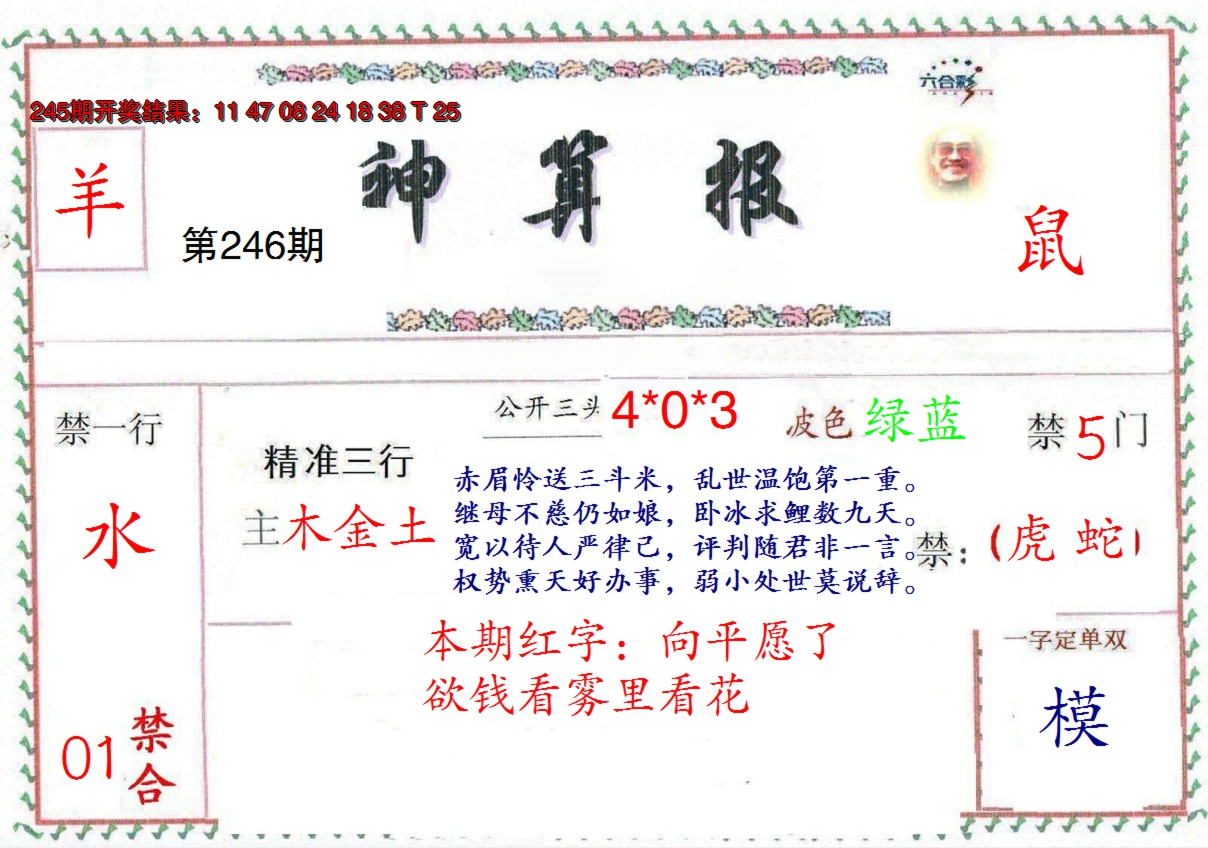 六合彩
245期开奖结果：11 47 08 24 18 38 T 25
神算报
羊
第246期
鼠
禁一行
水
01
禁合
精准三行
主木金土
公开三头 4*0*3
波色 绿蓝
禁5门
赤眉怜送三斗米，乱世温饱第一重。
继母不慈仍如娘，卧冰求鲤数九天。
宽以待人严律己，评判随君非一言。
权势熏天好办事，弱小处世莫说辞。
禁：（虎 蛇）
本期红字：向平愿了
欲钱看雾里看花
一字定单双
模